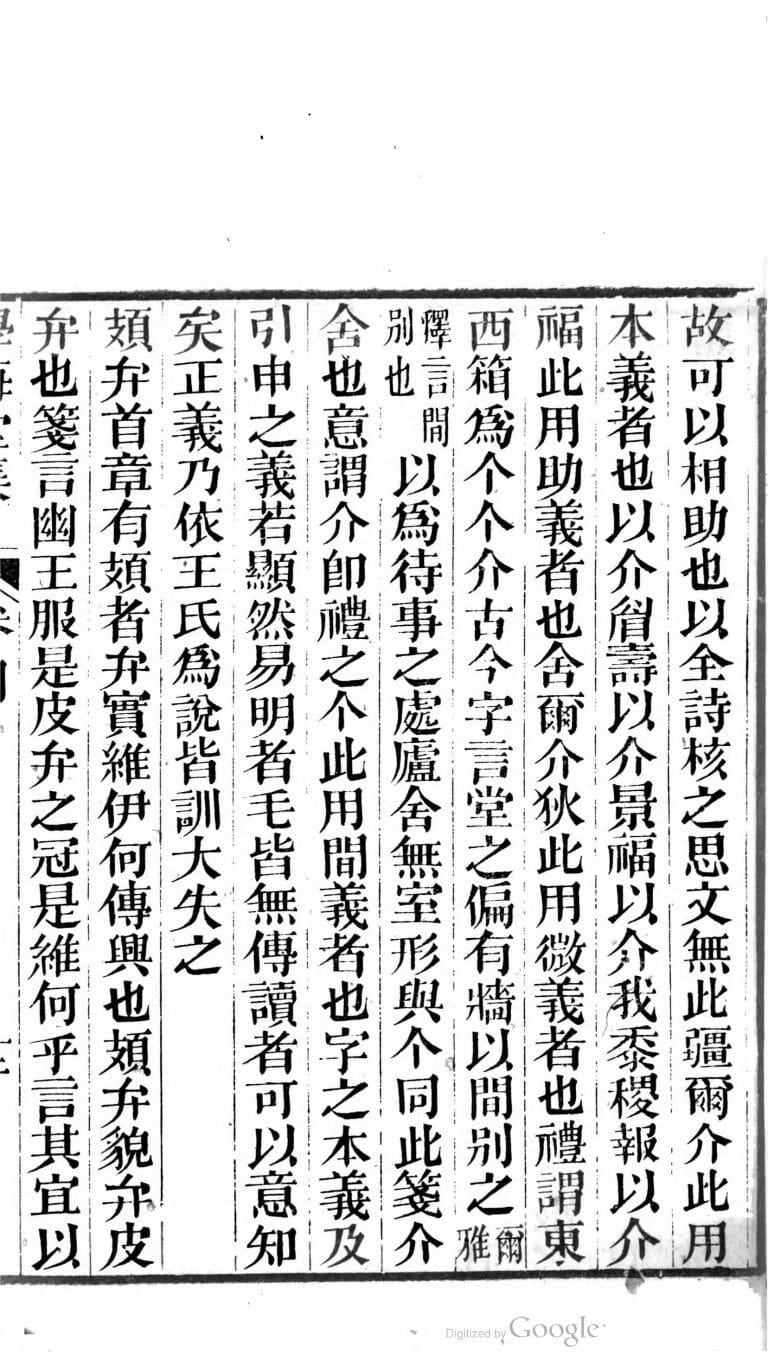 故可以相助也以全詩核之思文無此疆爾介此用
本義者也以介眉壽以介景福以介我黍稷報以介
福此用助義者也舍爾介狄此用微義者也禮謂東
西箱爲个个介古今字言堂之偏有牆以間别之爾雅
釋言間别也以爲待事之處廬舍無室形與个同此箋介
舍也意謂介卽禮之个此用間義者也字之本義及
引申之義若顯然易明者毛皆無傳讀者可以意知
矣正義乃依王氏爲說皆訓大失之
頍弁首章有頍者弁實維伊何傳興也頍弁貌弁皮
弁也箋言幽王服是皮弁之冠是維何乎言其宜以
Digitized by Google